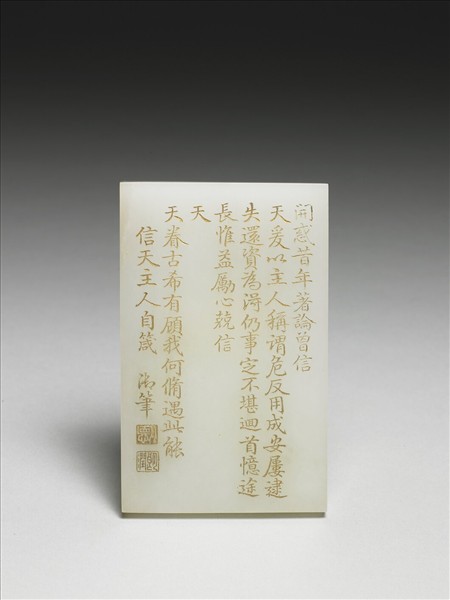 開惑昔年著論曾信
天爰以主人稱謂危反用成安屢逮
失還資為得仍事定不堪迴首憶途
長惟益勵心兢信
天
天眷古希有顧我何脩遇此能
信天主人自箴 御筆